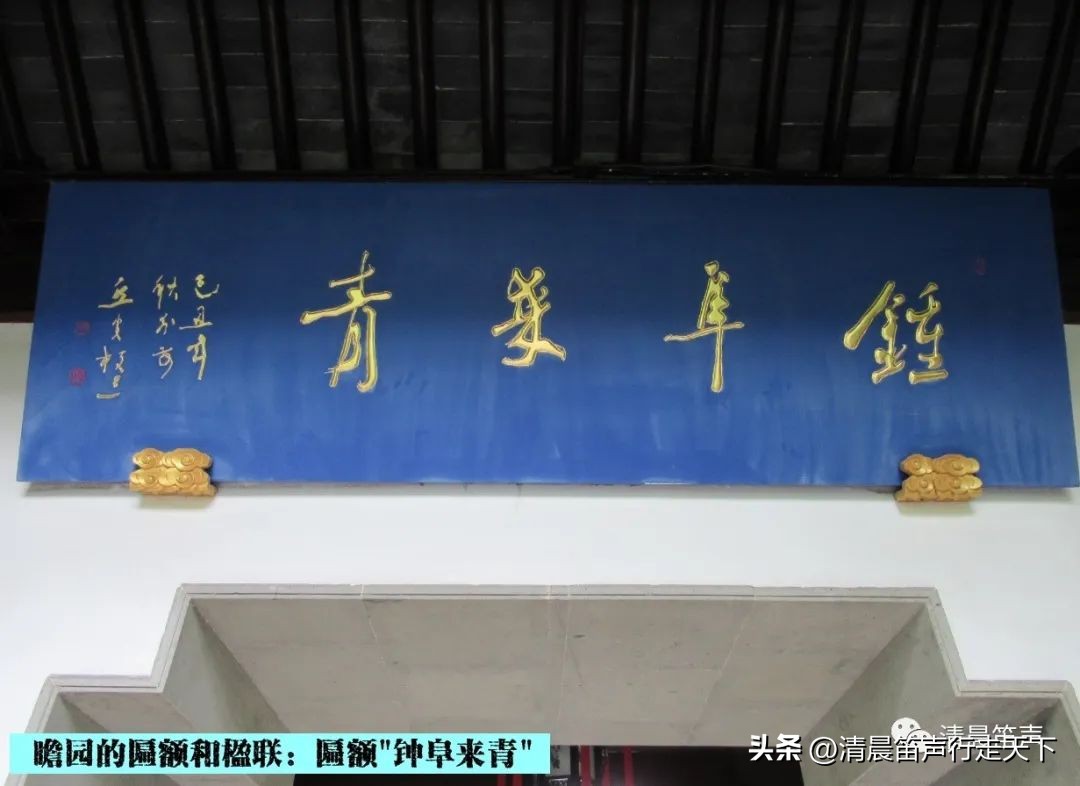 鍾阜來青
己丑
瞻园的匾额和楹联：匾额"钟阜来青"
清晨笛声
头条 @清晨笛声行走天下